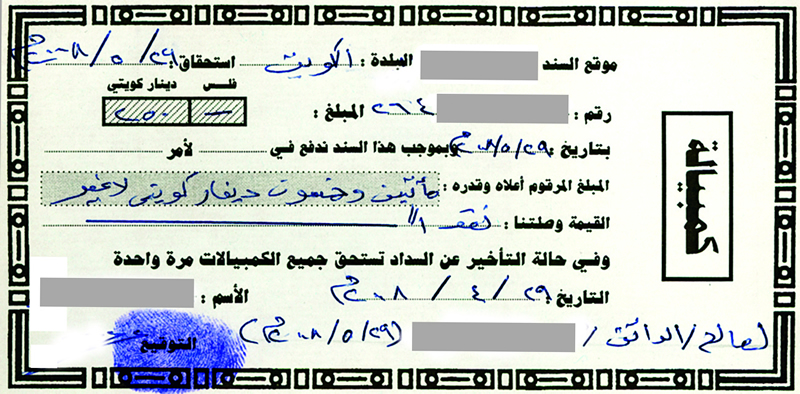 موقع السند البلدة : الكويت استحقاق : ٢٩ / ٥ / ٢٠٠٨م
فلس دينار كويتي
رقم : ٢٦٤ المبلغ : - ٢٥٠
بتاريخ : ٢٩/٥/٢٠٠٨م وبموجب هذا السند ندفع في لأمر
المبلغ المرقوم أعلاه وقدره : مأتين وخمسون دينار كويتي لاغير
القيمة وصلتنا : نقداً
وفي حالة التأخير عن السداد تستحق جميع الكمبيالات مرة واحدة
التاريخ : ٢٩ / ٤ / ٢٠٠٨م الأسم :
لصالح/الدائن / (٢٩/٥/٢٠٠٨م) التوقيع
كمبيالة